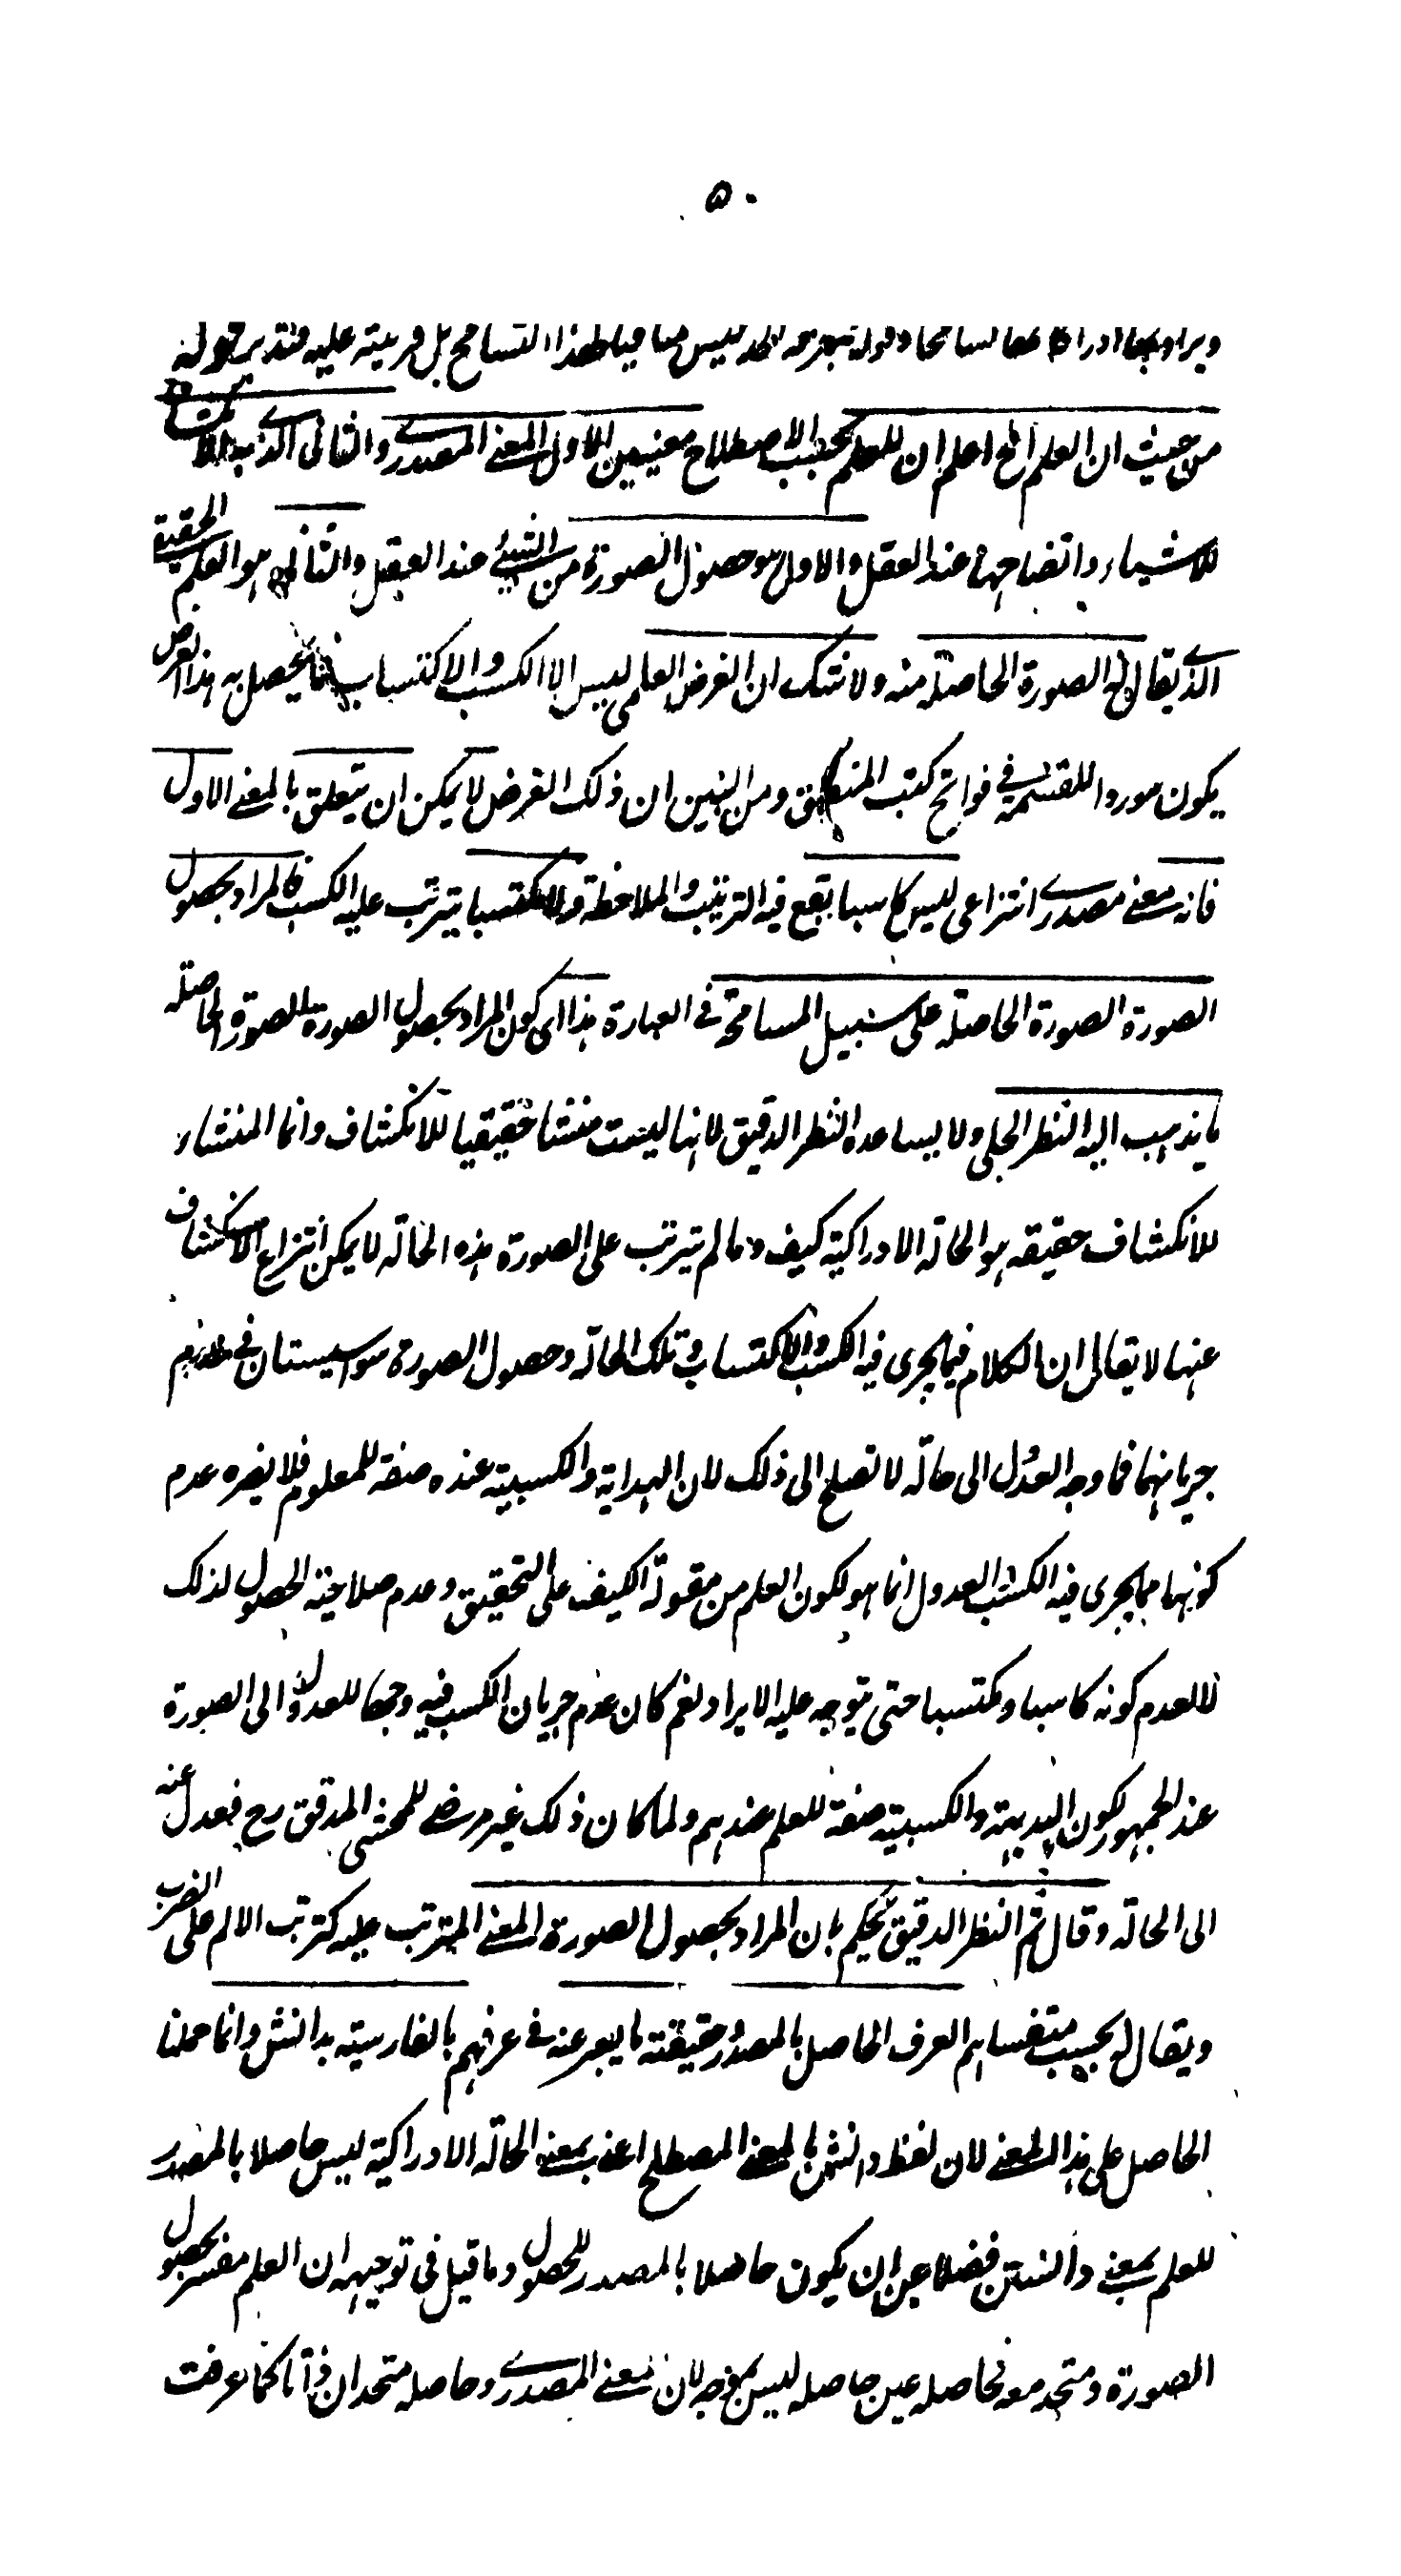 ٥٠
ويراد بها ادراكا تسامحا وقوله ليس منافيا لهذا التسامح بل قرينة عليه فتدبر قوله
من حيث ان العلم الخ اعلم ان للعلم بحسب الاصطلاح معنيين الاول المعنى المصدرى والثانى الذى به الانكشاف
للاشياء واتضاحها عند العقل والاول هو حصول الصورة من الشيئ عند العقل والثانى هو العلم الحقيقى
الذى يقال له الصورة الحاصلة منه ولا شك ان الغرض العلمى ليس الا الكسب والاكتساب فما يحصل به هذا الغرض
يكون موردا للقسمة فى فواتح كتب المنطق ومن البين ان ذلك الغرض لا يمكن ان يتعلق بالمعنى الاول
فانه معنى مصدرى انتزاعى ليس كاسبا يقع فيه الترتيب والملاحظة ولا مكتسبا يترتب على الكسب فالمراد بحصول
الصورة الصورة الحاصلة على سبيل المسامحة فى العبارة هذا اى كون المراد بحصول الصورة الصورة الحاصلة
ما يذهب اليه النظر الجلى ولا يساعده النظر الدقيق لانها ليست منشأ حقيقيا للانكشاف وانما المنشاء
للانكشاف حقيقه هو الحالة الادراكية كيف وما لم يترتب على الصورة هذه الحالة لا يمكن انتزاع الانكشاف
عنها لا يقال ان الكلام فيما يجرى فيه الكسب والاكتساب وتلك الحالة وحصول الصورة سواسيتان فى عدم
جريانهما فما وجه العدول الى حالة لا تصلح الى ذلك لان البداهة والكسبية عنده صفة للمعلوم فلا يضره عدم
كونها مما يجرى فيه الكسب العدول انما هو لكون العلم من مقولة الكيف على التحقيق وعدم صلاحية الحصول لذلك
لا لعدم كونه كاسبا ومكتسبا حتى يتوجه عليه الايراد نعم كان عدم جريان الكسب فيه وجها للعدول الى الصورة
عند الجمهور لكون البديهية والكسبية صفة للعلم عندهم ولما كان ذلك غير مرضى للمحشى المدقق رح فعدل عنه
الى الحالة وقال ثم النظر الدقيق يحكم بان المراد بحصول الصورة المعنى المترتب عليه كترتب الالم على الضرب
ويقال له بحسب متفاهم العرف الحاصل بالمصدر وحقيقته ما يعبر عنه فى عرفهم بالفارسية بدانش وانما حملنا
الحاصل على هذا المعنى لان لفظ دانش بالمعنى المصطلح اعنى بمعنى الحالة الادراكية ليس حاصلا بالمصدر
للعلم بمعنى دانستن فضلا عن ان يكون حاصلا بالمصدر للحصول وما قيل فى توجيهه ان العلم مفسر بحصول
الصورة ومتحد معه فحاصله عين حاصله ليس بموجه لان معنى المصدرى وحاصله متحدان ذاتا كما عرفت